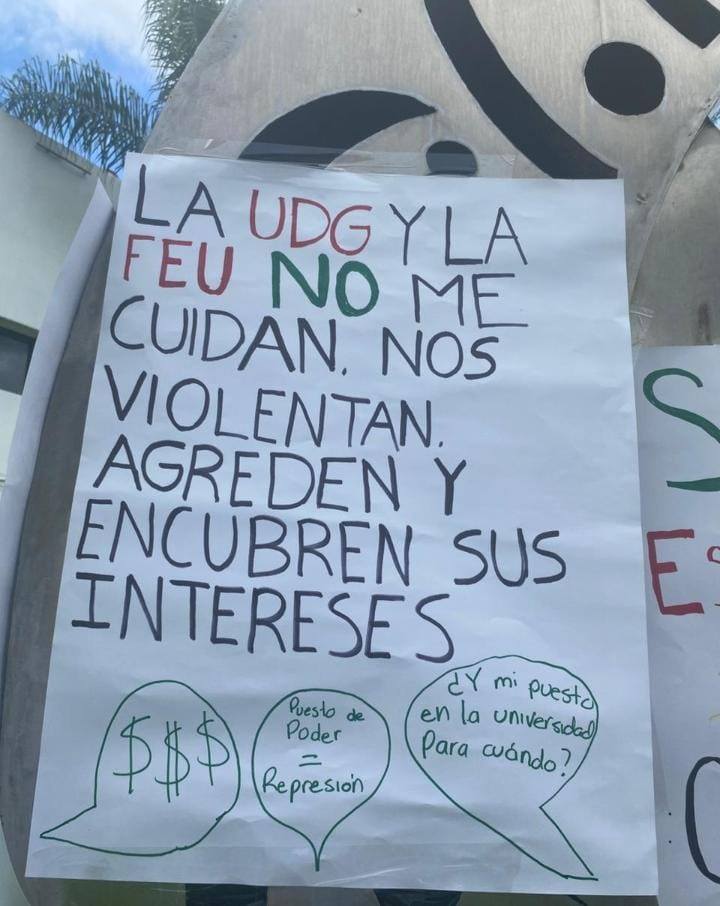 LA UDG Y LA
FEU NO ME
CUIDAN. NOS
VIOLENTAN.
AGREDEN Y
ENCUBREN SUS
INTERESES
$$$
Puesto de
Poder
=
Represión
¿Y mi puesto
en la universidad
Para cuándo?